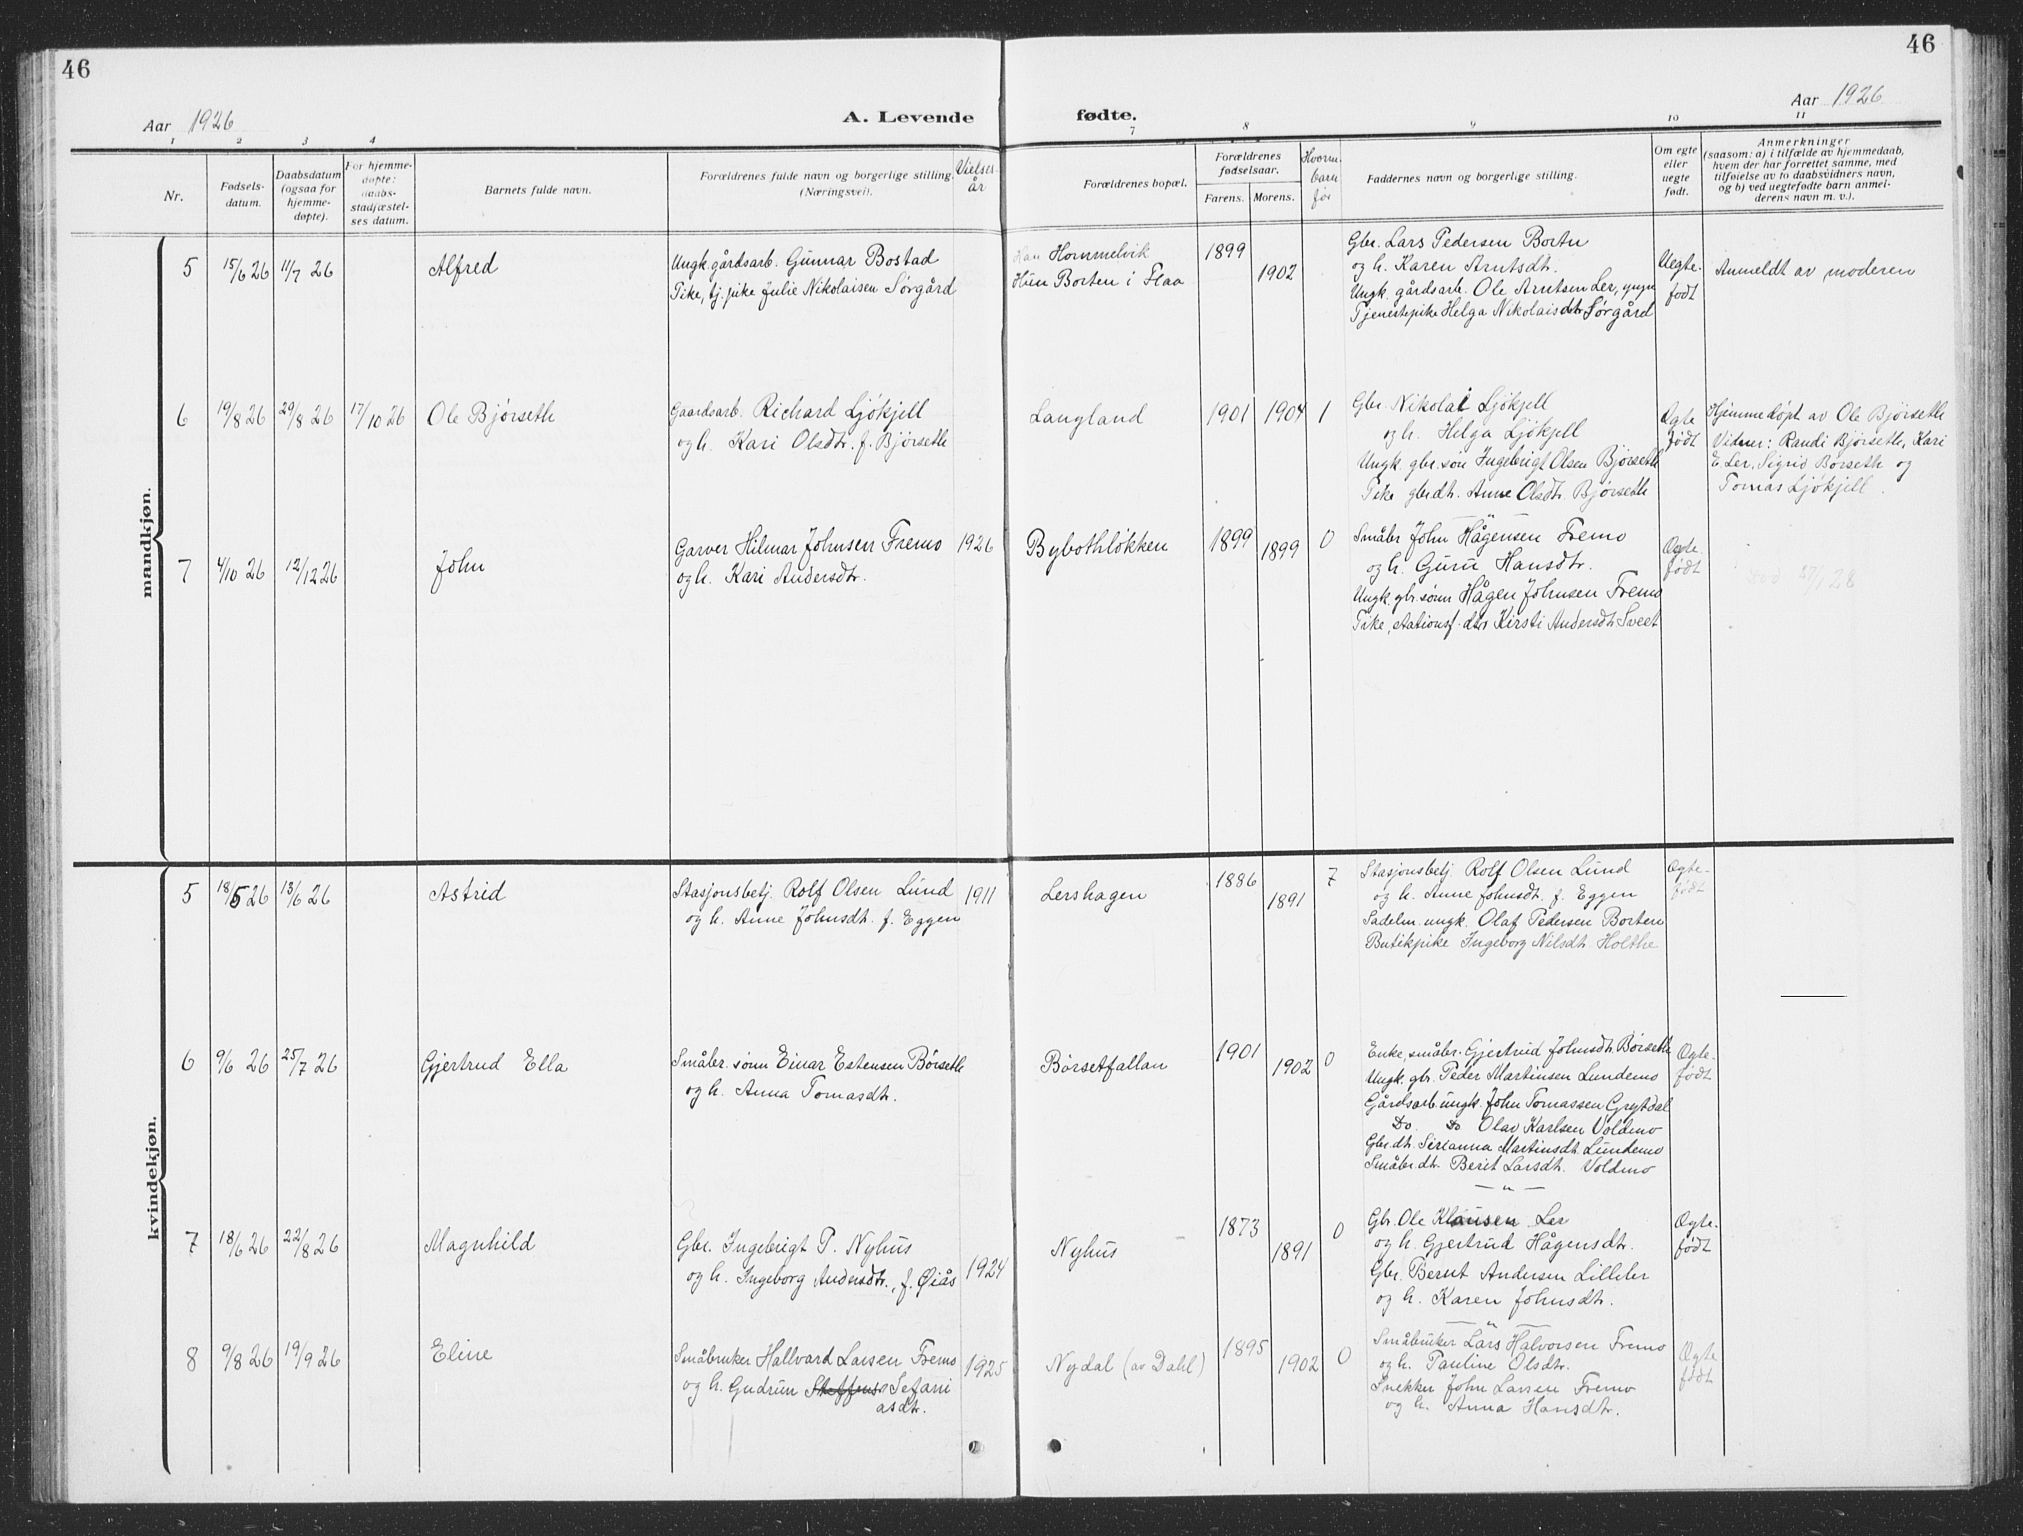 46
46
Aar 1926
A. Levende
fødte.
Aar 1926
1 2 3 4
7 8 9 10 11
Nr.
Fødsels-
datum.
Daabsdatum
(ogsaa for
hjemme-
døpte).
For hjemme-
døpte:
daabs-
stadfæstel-
ses datum.
Barnets fulde navn.
Forældrenes fulde navn og borgerlige stilling.
(Næringsvei).
Vielses-
år
Forældrenes bopæl.
Forældrenes
fødselsaar.
Farens. Morens.
Hvorm.
barn
før
Faddernes navn og borgerlige stilling.
Om egte
eller
uegte
født.
Anmerkninger
(saasom: a) i tilfælde av hjemmedaab,
hvem der har forrettet samme, med
tilføielse av to daabsvidners navn,
og b) ved uegtefødte barn anmel-
derens navn m. v.).
mandkjøn.
5 15/6 26 11/7 26 Alfred
Ungk. gårdsarb. Gunnar Bostad
Pike, tj.pike Julie Nikolaisen Sørgård
Han Hommelvik
Hun Borten i Flaa
1899 1902
Gbr. Lars Pedersen Borten
og h. Karen Arntsdtr.
Ungk. gårdsarb. Ole Arntsen Ler,
Tjenestepike Helga Nikolaisdtr Sørgård
Uegte-
født
Anmeldt av moderen
6 19/8 26 29/8 26 17/10 26 Ole Bjørseth
Gaardsarb. Richard Ljøkjell
og h. Kari Olsdtr. f. Bjørseth
Langland
1901 1904 1
Gbr. Nikolai Ljøkjell
og h. Helga Ljøkjell
Ungk. gbr. søn Ingebrigt Olsen Bjørseth
Pike gbr.dt. Anne Olsdtr. Bjørseth
Ægte
født
Hjemmedøpt av Ole Bjørseth
Vidner: Randi Bjørseth, Kari
E. Ler, Sigrid Børseth og
Tomas Ljøkjell.
7 4/10 26 12/12 26 John
Garver Hilmar Johnsen Fremo
og h. Kari Andersdtr.
1926
Bybothløkken
1899 1899 0
Småbr John Hågensen Fremo
og h. Guru Hansdtr.
Ungk. gbr. sønn Hågen Johnsen Fremo
Pike, stationsf. dtr Kirsti Andersdtr Sveet
Ægte-
født
28
kvindekjøn.
5 18/5 26 13/6 26 Astrid
Stasjonsbetj. Rolf Olsen Lund
og h. Anne Johnsdt. f. Eggen
1911
Lershagen
1886 1891 7
Stasjonsbetj. Rolf Olsen Lund
og h. Anne Johnsdt. f. Eggen
Sadelm. ungk. Olaf Pedersen Borten
Butikpike Ingeborg Nilsdt. Holthe
Ægte-
født
6 9/6 26 25/7 26 Gjertrud Ella
Småbr. sønn Einar Estensen Børseth
og h. Anna Tomasdtr.
Børsetfallan
1901 1902 0
Enke, småbr. Gjertrud Johnsdt. Børseth
Ungk. gbr. Peder Martinsen Lundemo
Gårdsarb. ungk. John Tomassen Grytdal
Do. Do Olav Karlsen Voldmo
Gbr. dt. Serianna Martinsdt. Lundemo
Småbr. dt. Berit Larsdt. Voldmo
— " —
Ægte-
født
7 18/6 26 22/8 26 Magnhild
Gbr. Ingebrigt P. Nyhus
og h. Ingeborg Andersdtr., f. Øiås
1924
Nyhus
1873 1891 0
Gbr. Ole Klausen Ler
og h. Gjertrud Hågensdtr.
Gbr. Bernt Andersen Lilleler
og h. Karen Johnsdtr.
— " —
Ægte-
født
8 9/8 26 19/9 26 Eline
Småbruker Hallvard Larsen Fremo
og h. Gudrun Steffens Sefani
asdtr.
1925
Nydal (av Dahl)
1895 1902 0
Småbruker Lars Halvorsen Fremo
og h. Pauline Olsdtr.
Snekker John Larsen Fremo
og h. Anna Hansdtr.
Ægte
født